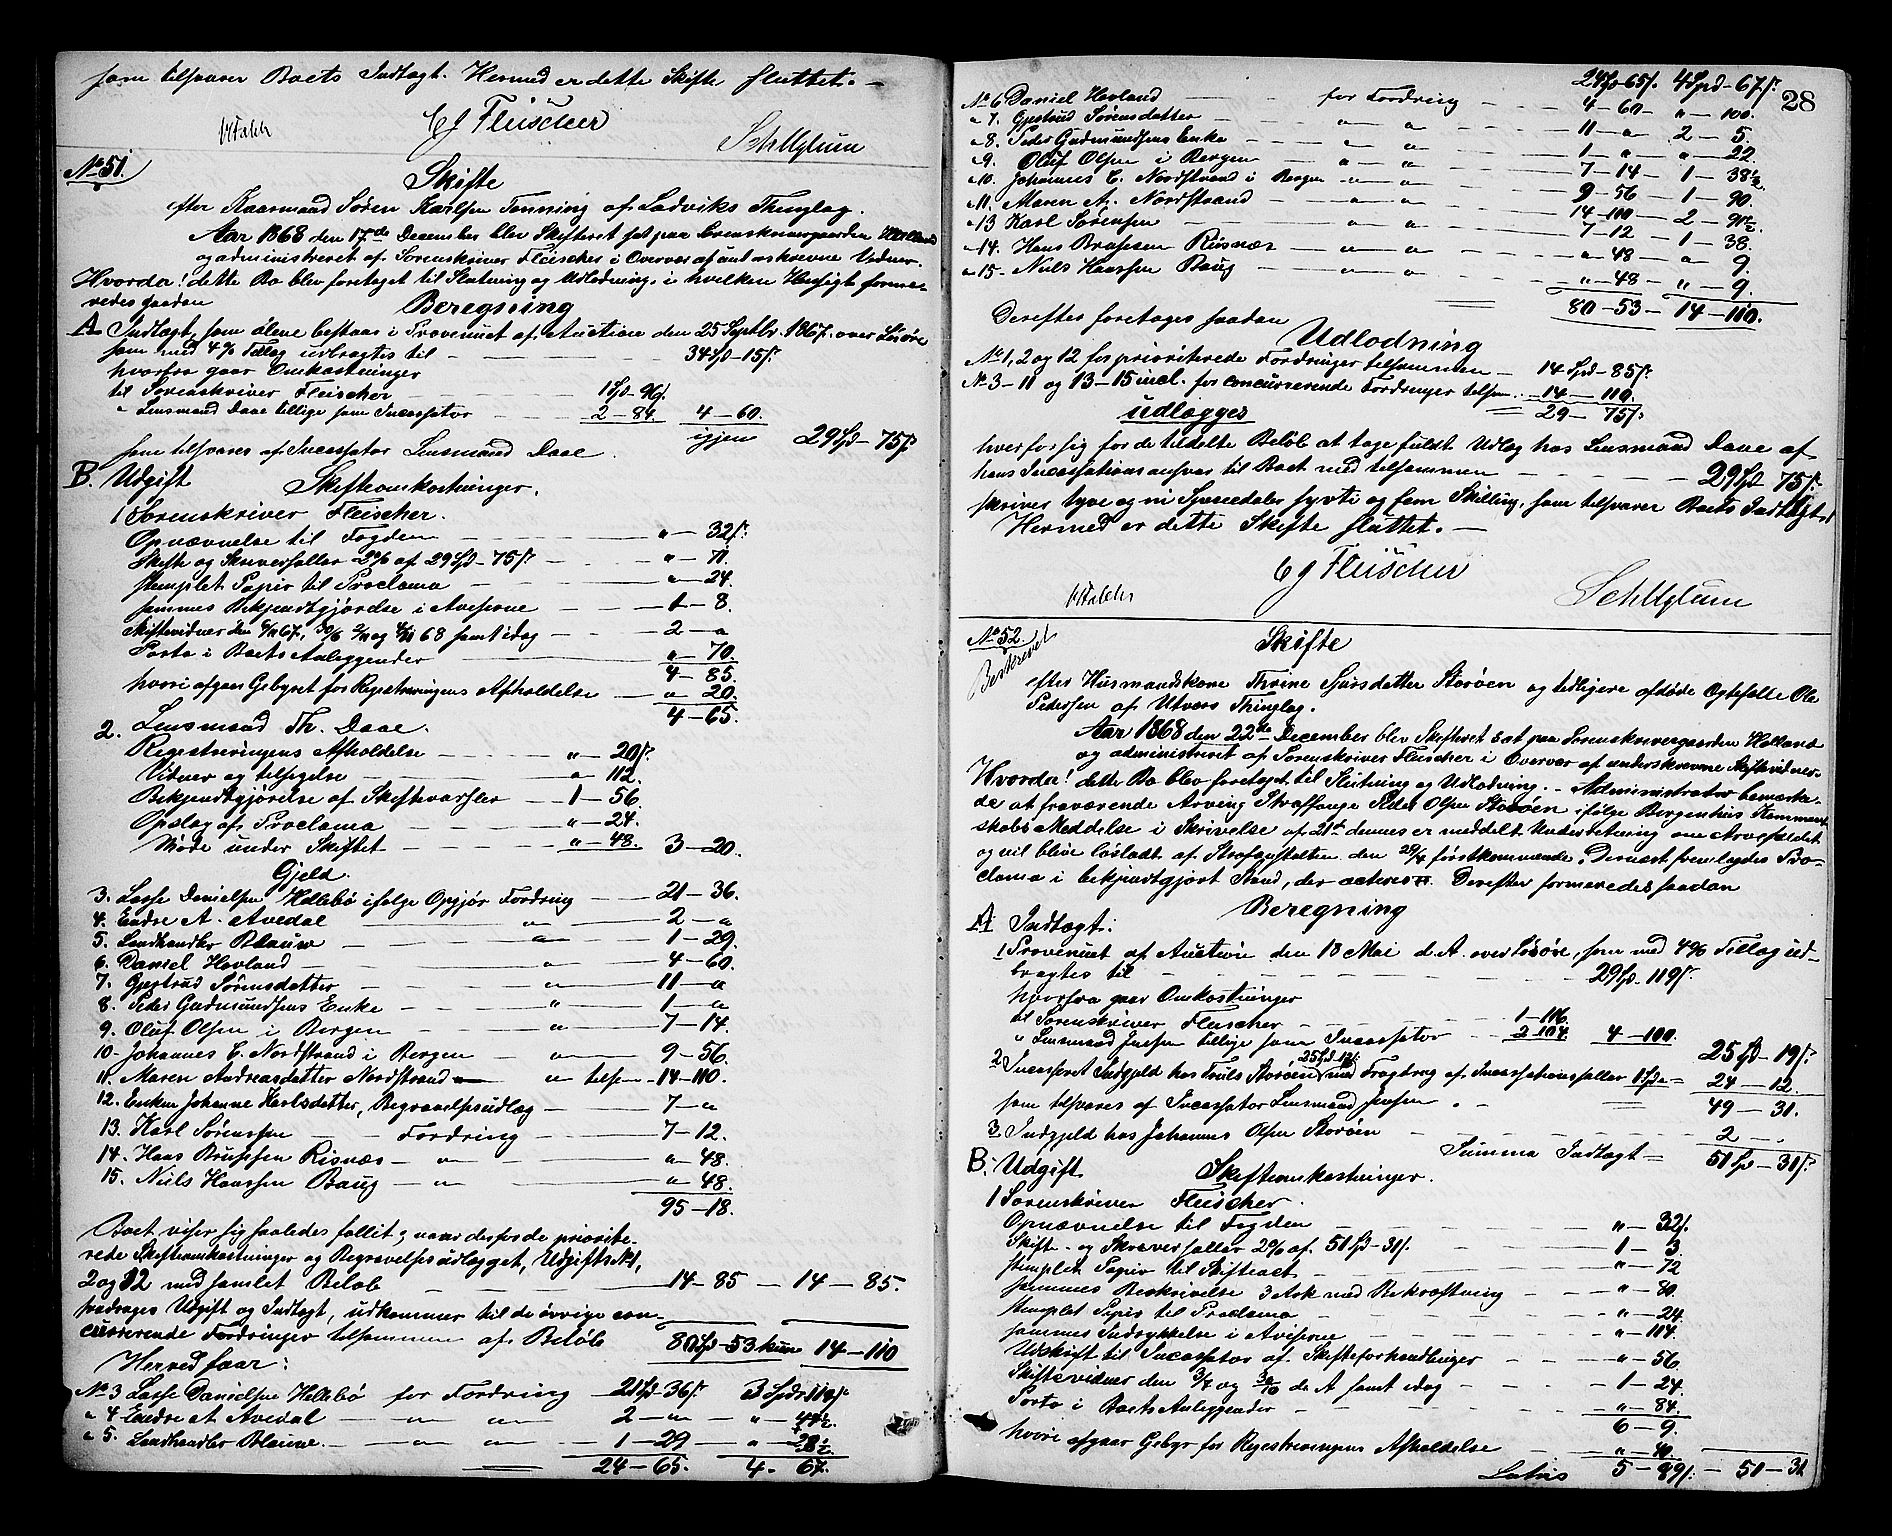 som tilsvarer Boets Indtægt. Hermed er dette Skifte sluttet. –
CJ Fleischer
No 51.
Skifte
efter Kaarmand Søren Karlsen Tenning af Ladviks Thinglag.
Aar 1868 den 17de December blev Skifteret sat paa Sorenskrivergaarden Holland
og administreret af Sorenskriver Fleischer i Overvær af undterskrevne Vidner.
Hvorda! dette Bo blev foretaget til Slutning og Udlodning, i hvilken Hensigt forme-
redes saadan
Beregning
A Indtægt, som alene bestaar i Provenuet af Auction den 25 Septbr. 1867 over Løsøre
som med 4% Tillæg udbragtes til – 34 Spd – 15 s.
hvorfra gaar Omkostninger
til Sorenskriver Fleischer – 1 Spd. 96 s.
" Lensmand Daae tillige som Incassator – 2 – 84. 4 – 60.
igjen 29 Spd – 75 s.
som tilsvares af Incassator Lensmand Daae.
B. Udgift
Skifteomkostninger.
1 Sorenskriver Fleischer.
Opnævnelse til Fogden – " – 32 s.
Skifte og Skriversaller 2% af 29 Spd – 75 s. – " – 71.
stemplet Papir til Proclama – " – 24.
sammes Bekjendtgjørelse i Aviserne – 1 – 8.
Skiftevidner den 67, 68 samt idag – 2 – "
Porto i Boets Anliggender – " – 70.
4 – 85.
hvori afgaar Gebyret for Registreringens Afholdelse – " 20.
4 – 65.
2. Lensmand Th. Daae.
Registreringens Afholdelse – " – 20 s.
Vidner og tilsigelse – " 112.
Bekjendtgjørelse af Skiftevarsler – 1 – 56.
Opslag af Proclama – " – 24.
Møde under Skiftet – " – 48. 3 – 20.
Gjeld.
3. Lasse Danielsen Hellebø ifølge Opgjør Fordring – 21 – 36.
4. Endre A. Avedal " – 2 – "
5. Landhandler Blauw – " – 1 – 29.
6. Daniel Hovland – " – 4 – 60.
7. Gjertrud Sørensdatter – " – 11 – "
8. Peder Gudmundsens Enke – " – 1 – "
9. Oluf Olsen i Bergen – " – 7 – 14.
10 – Johannes C. Nordstrand i Bergen – " – 9 – 56.
11. Maren Andreasdatter Nordstrand " tilsm – 14 – 110.
12. Enken Johanne Karlsdatter, Begravelsesudlæg – 7 – "
13. Karl Sørenssen – Fordring – 7 – 12.
14. Hans Brussen Risnæs – " – " 48.
15. Niels Hanssen Baug – " – " 48.
95 – 18.
Boet viser sig saaledes fallit; naar derfor de priorite-
rede Skifteomkostninger og Begravelsesudlægget, Udgifts No 1,
2 og 12 med samlet Beløb – 14 – 85 – 14 – 85.
fradrages Udgift og Indtægt, udkommer til de øvrige con-
currerende Fordringer tilsammen af Beløb 80 Spd – 53 kun 14 – 110
Herved faar:
No 3 Lasse Danielsen Hellebø for Fordring – 21 Spd – 36 s. 3 Spd 114 s.
" 4 Endre A Avedal – " " – 2 – " – " – 44½
" 5. Landhandler Blauw. – " " – 1 – 29 – " – 28½
24 – 65. 4 – 67.
28
24 Spd – 65 s. 4 Spd – 67 s.
No 6 Daniel Hovland – for Fordring – 4 – 60 – " – 100.
" 7. Gjertrud Sørensdatter – " " – 11 – " 2 – 5
" 8. Peder Gudmundsens Enke – " " – 1 – " – " – 22.
" 9. Oluf Olsen i Bergen – " " – 7 – 14 – 1 – 38½
" 10. Johannes C. Nordstrand i Bergen – " – " – 9 – 56 – 1 – 90.
" 11. Maren A. Nordstrand – " – " – 14 – 110 – 2 – 91½
" 13 Karl Sørensen – " " – 7 – 12 – 1 – 38.
" 14. Hans Brussen Risnæs – " – " – " 48 – " 9.
" 15 – Niels Hanssen Baug – " – " – " – 48 – " – 9.
80 – 53 – 14 – 110.
Derefter foretages saadan
Udlodning
No 1, 2 og 12 for prioriterede Fordringer tilsammen – 14 Spd – 85 s.
No 3 – 11 og 13 – 15 incl. for concurrerende Fordringer tilsm. – 14 – 110.
29 – 75 s.
udlægges
hver for sig for de tildelte Beløb at tage fuldt Udlæg hos Lensmand Daae af
hans Incassationsansvar til Boet med tilsammen – 29 Spd 75 s.
skriver tyve og ni Speciedaler syvti og fem Skilling, som tilsvarer Boets Indtægt.
Hermed er dette Skifte sluttet. –
CJ Fleischer
No 52.
Beskrevet
Skifte
efter Husmandskone Thrine Sjursdatter Storøen og tidligere afdøde Ægtefælle Ole
Pedersen af Utvers Thinglag.
Aar 1868 den 22de December blev Skifteret sat paa Sorenskrivergaarden Holland
og administreret af Sorenskriver Fleischer i Overvær af underskrevne Skiftevidner.
Hvorda! dette Bo blev foretaget til Slutning og Udlodning. – Administrator bemærke-
de at fraværende Arving Straffange Peder Olsen Storøen ifølge Bergenhus Kommandant-
skabs Meddelse i Skrivelse af 21de dennes er meddelt Underretning om Arvefaldet
og vil blive løsladt af Strafanstalten den 29/4 førstkommende. Dernæst fremlagdes Pro-
clama i bekjendtgjort Stand, der acteres. Derefter formeredes saadan
Beregning
A Indtægt:
1. Provenuet af Auction den 18 Mai d. A. over Løsøre, som med 4% Tillæg ud-
bragtes til – 29 Spd. 119 s.
hvorfra gaar Omkostninger
til Sorenskriver Fleischer – 1 – 116.
" Lensmand Jensen tillige som Incassator – 2 104 4 – 100.
25 Spd – 19 s.
2. Incasseret Indgjeld hos Truls Storøen 25 Spd 12 s. med Fragdrag af Incassationssaller 1 Spd = 24 – 12.
som tilsvares af Incassator Lensmand Jensen. 49 – 31.
3. Indgjeld hos Johannes Olsen Storøen – 2 – .
Summa Indtægt = 51 Spd – 31 s.
B. Udgift
Skifteomkostninger.
1 Sorenskriver Fleischer.
Opnævnelse til Fogden – " – 32 s.
Skifte- og Skriversaller 2% af 51 Spd – 31 s. – 1 – 3.
stemplet Papir til Skifteact – " – 72
sammes Beskrivelse 3 Ark med Bekræftning – " – 80.
stemplet Papir til Proclama – " – 24.
sammes Indrykkelse i Aviserne – " – 114.
Udskrift til Incassator af Skifteforhandlinger – " – 56.
Skiftevidner den 3/4 og 30/10 de A samt idag – 1 – 24.
Porto i Boets Anliggender – " – 84.
6 – 9.
hvori afgaar Gebyr for Registreringens Afholdelse – " 40.
Latus 5 – 89 s. – 51 – 31